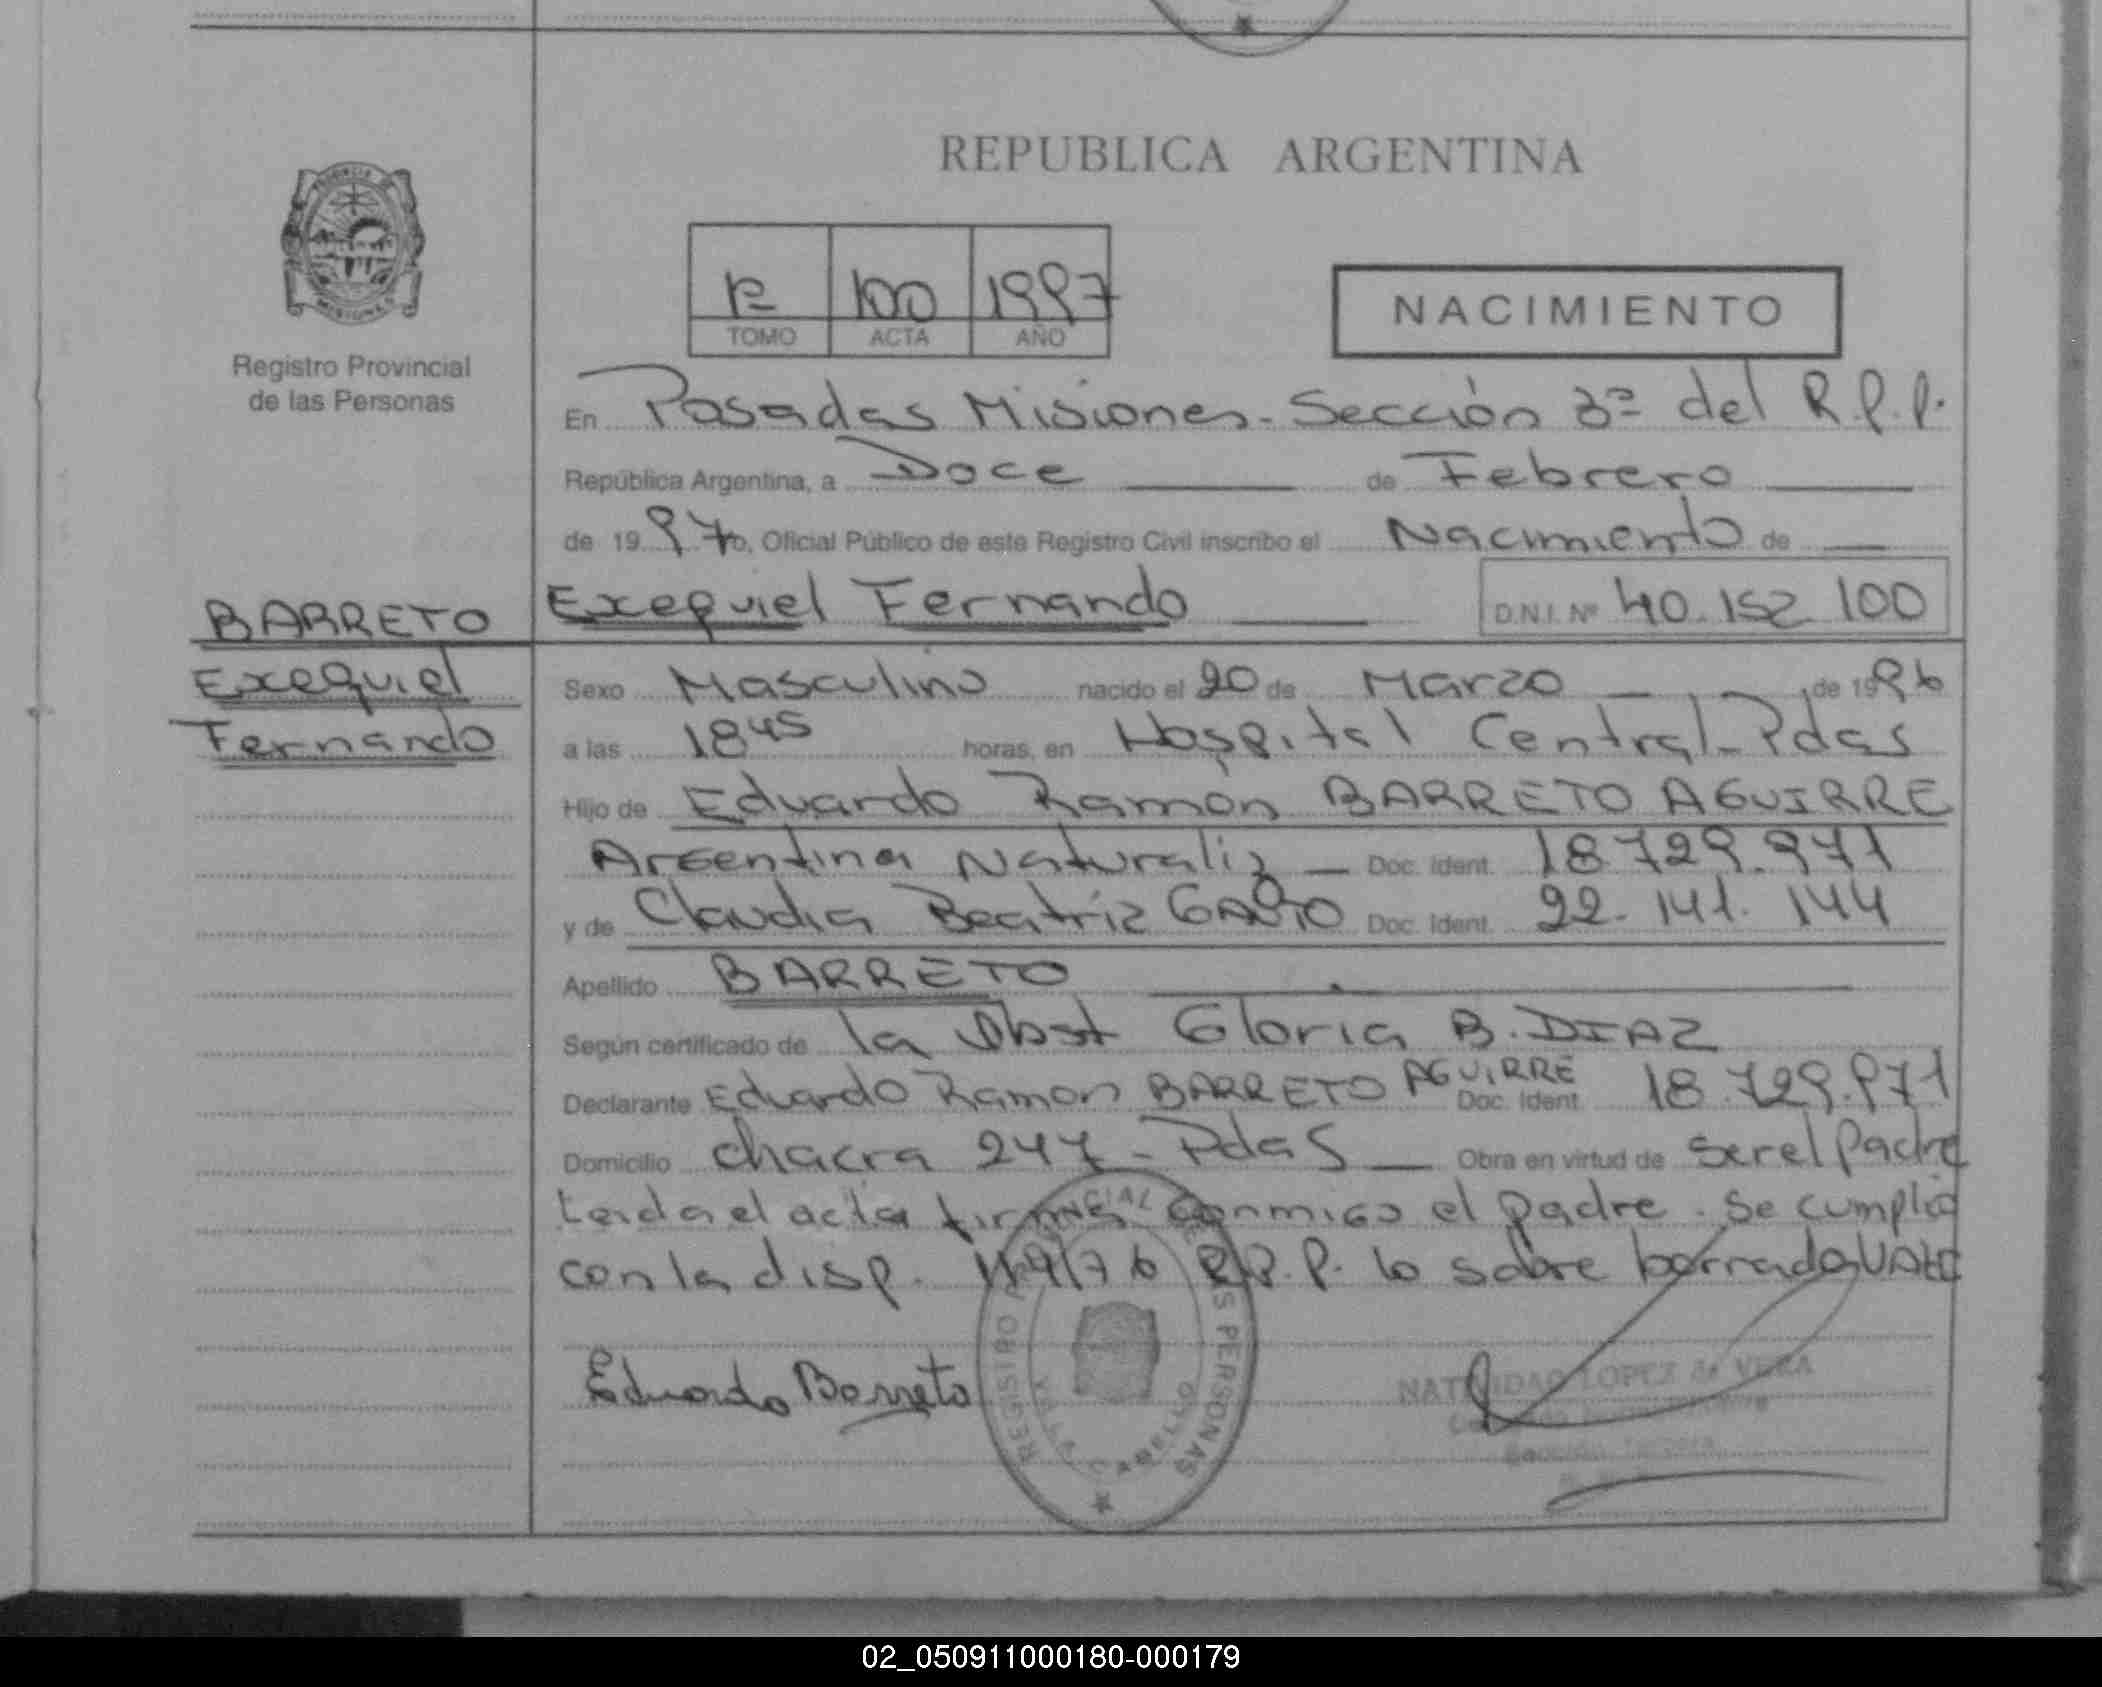 REPUBLICA ARGENTINA
PROVINCIA DE MISIONES
Registro Provincial
de las Personas
1º 100 1997
TOMO ACTA AÑO
NACIMIENTO
En Posadas Misiones - Sección 3ª del R.P.P.
República Argentina, a Doce de Febrero
de 1997 yo, Oficial Público de este Registro Civil inscribo el Nacimiento de
BARRETO
Exequiel
Fernando
Exequiel Fernando D.N.I. Nº 40.152 100
Sexo Masculino nacido el 20 de Marzo de 1996
a las 18 45 horas, en Hospital Central - Pdas
Hijo de Eduardo Ramón BARRETO AGUIRRE
Argentina Naturaliz Doc. Ident. 18.729.971
y de Claudia Beatriz Doc. Ident. 22.141.144
Apellido BARRETO
Según certificado de la Obst Gloria B. DIAZ
Declarante Eduardo Ramon BARRETO AGUIRRE Doc. Ident. 18.729.971
Domicilio chacra 247 - Pdas Obra en virtud de ser el Padre
Leida el acta firma conmigo el padre. Se cumplió
con la disp. 119/76 R.P.P. lo sobre borrado VALE
Eduardo Barreto
REGISTRO PROVINCIAL DE LAS PERSONAS
VILLA CABELLO
NATIVIDAD LOPEZ de VERA
Sección Tercera
02_050911000180-000179